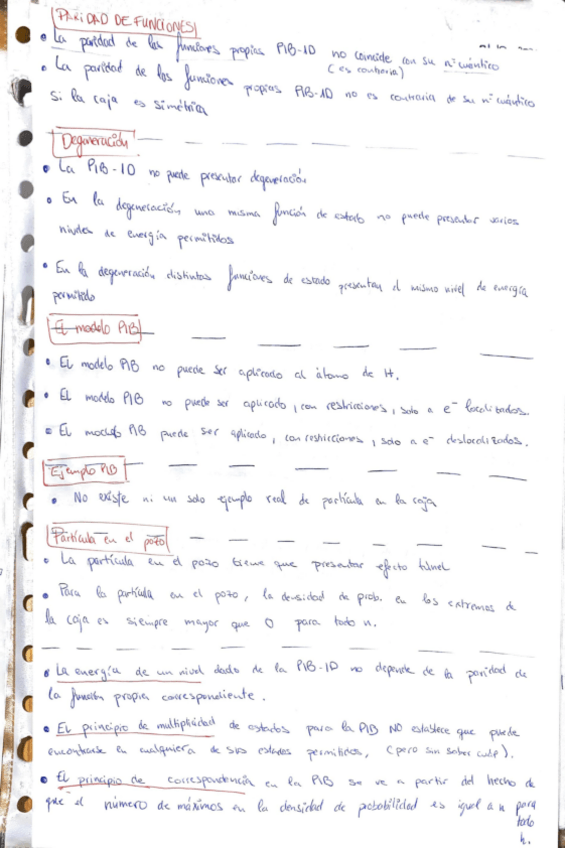 PARIDAD DE FUNCIONES
• La paridad de las funciones propias PIB-1D no coincide con su nº cuántico
(es contraria)
• La paridad de las funciones propias PIB-1D no es contraria de su nº cuántico
si la caja es simétrica
Degeneración
• La PIB-1D no puede presentar degeneración
• En la degeneración una misma función de estado no puede presentar varios
niveles de energía permitidos
• En la degeneración distintas funciones de estado presentan el mismo nivel de energía
permitido
El modelo PIB
• El modelo PIB no puede ser aplicado al átomo de H.
• El modelo PIB no puede ser aplicado, con restricciones, solo a e⁻ localizados.
• El modelo PIB puede ser aplicado, con restricciones, solo a e⁻ deslocalizados.
Ejemplo PIB
• No existe ni un solo ejemplo real de partícula en la caja
Partícula en el pozo
• La partícula en el pozo tiene que presentar efecto túnel
• Para la partícula en el pozo, la densidad de prob. en los extremos de
la caja es siempre mayor que 0 para todo n.
• La energía de un nivel dado de la PIB-1D no depende de la paridad de
la función propia correspondiente.
• El principio de multiplicidad de estados para la PIB NO establece que puede
encontrarse en cualquiera de sus estados permitidos, (pero sin saber cuál).
• El principio de correspondencia en la PIB se ve a partir del hecho de
que el número de máximos en la densidad de probabilidad es igual a n para
todo
n.